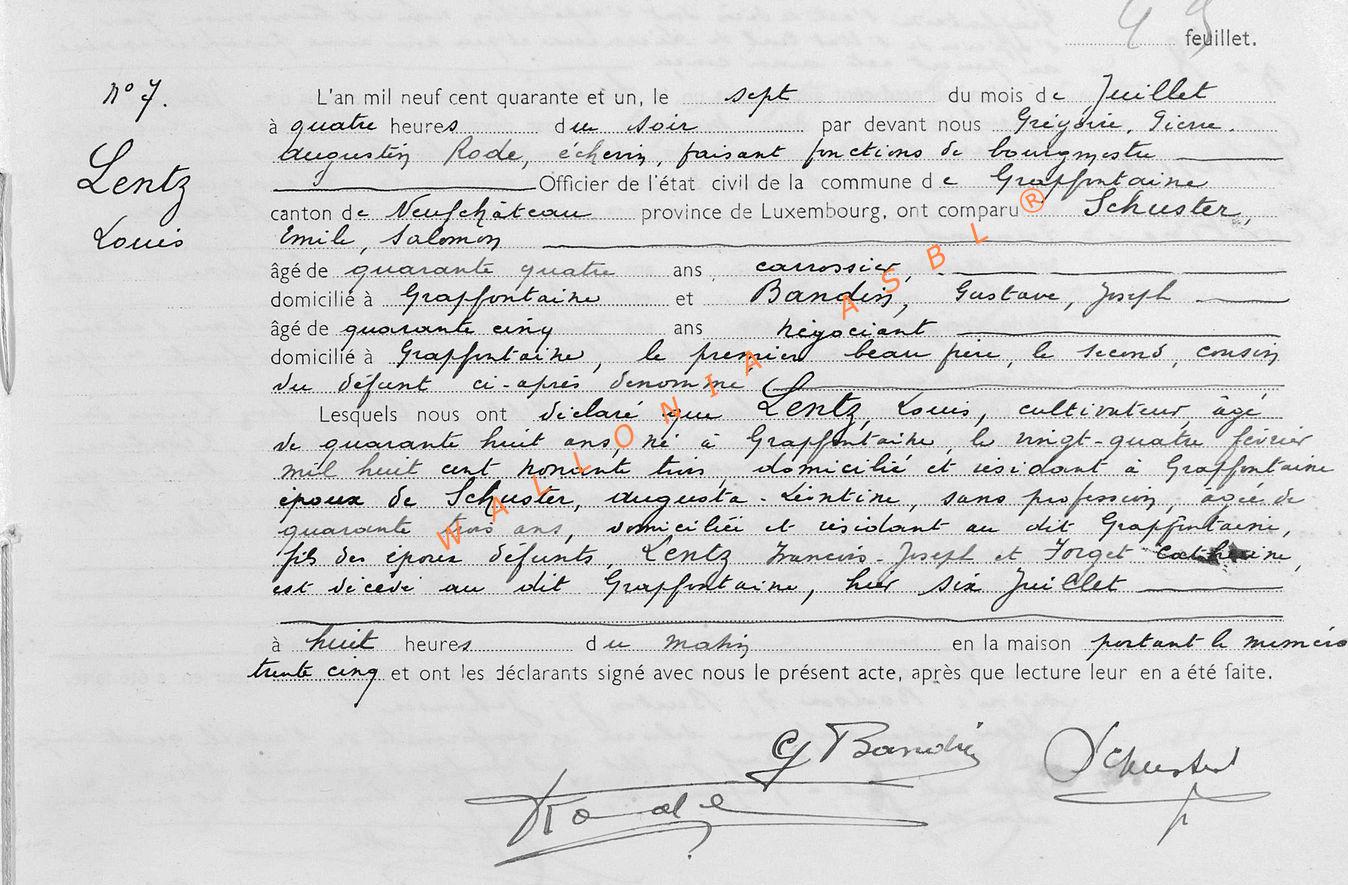 49 feuillet.
N° 7.
L'an mil neuf cent quarante et un, le sept du mois de Juillet
à quatre heures du soir par devant nous Grégoire, Pierre.
Lentz
Louis
augustin Rode, échevin, faisant fonctions de bourgmestre
Officier de l'état civil de la commune de Grapfontaine
canton de Neufchâteau province de Luxembourg, ont comparu Schuster,
Emile, Salomon
âgé de quarante quatre ans carrossier,
domicilié à Grapfontaine et Bandin, Gustave, Joseph
âgé de quarante cinq ans négociant
domicilié à Grapfontaine, le premier beau frère, le second, cousin
du défunt ci-après dénommé
Lesquels nous ont déclaré que Lentz, Louis, cultivateur, âgé
de quarante huit ans, né à Grapfontaine, le vingt-quatre février
mil huit cent nonante trois, domicilié et résidant à Grapfontaine
époux de Schuster, augusta-Léontine, sans profession, âgée de
quarante trois ans, domiciliée et résidant au dit Grapfontaine,
fils des époux défunts, Lentz François-Joseph et Forget Catherine,
est décédé au dit Grapfontaine, hier six Juillet
à huit heures du matin en la maison portant le numéro
trente cinq et ont les déclarants signé avec nous le présent acte, après que lecture leur en a été faite.
G Bandin Schuster
Rode
WALLONIA ASBL®